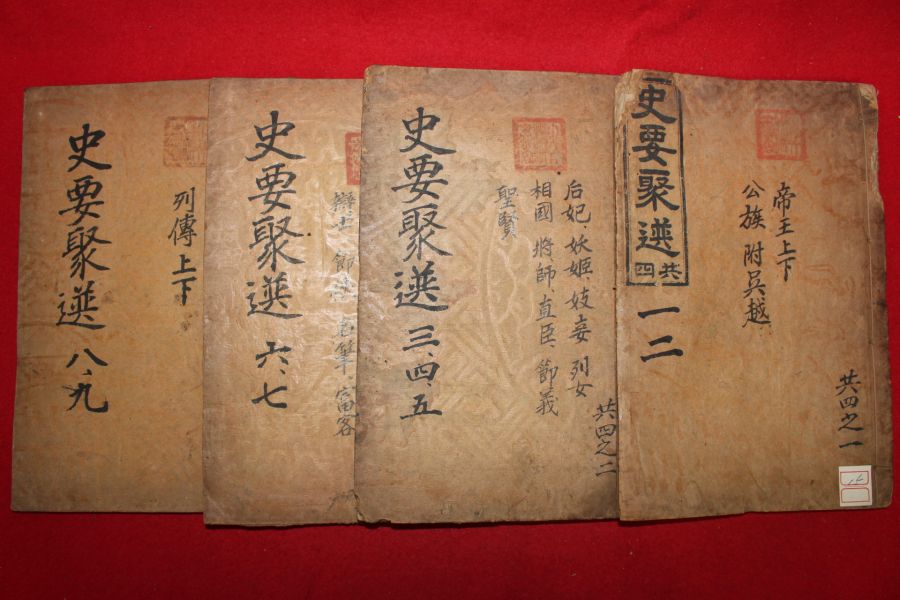 史要聚選 共四
一二
帝王上下
公族 附吳越
共四之一
史要聚選 三、四、五
后妃、妖姬 妓妾 列女
相國 將帥 直臣、節義
聖賢
共四之二
史要聚選 六、七
名筆 富客
史要聚選 八、九
列傳 上下